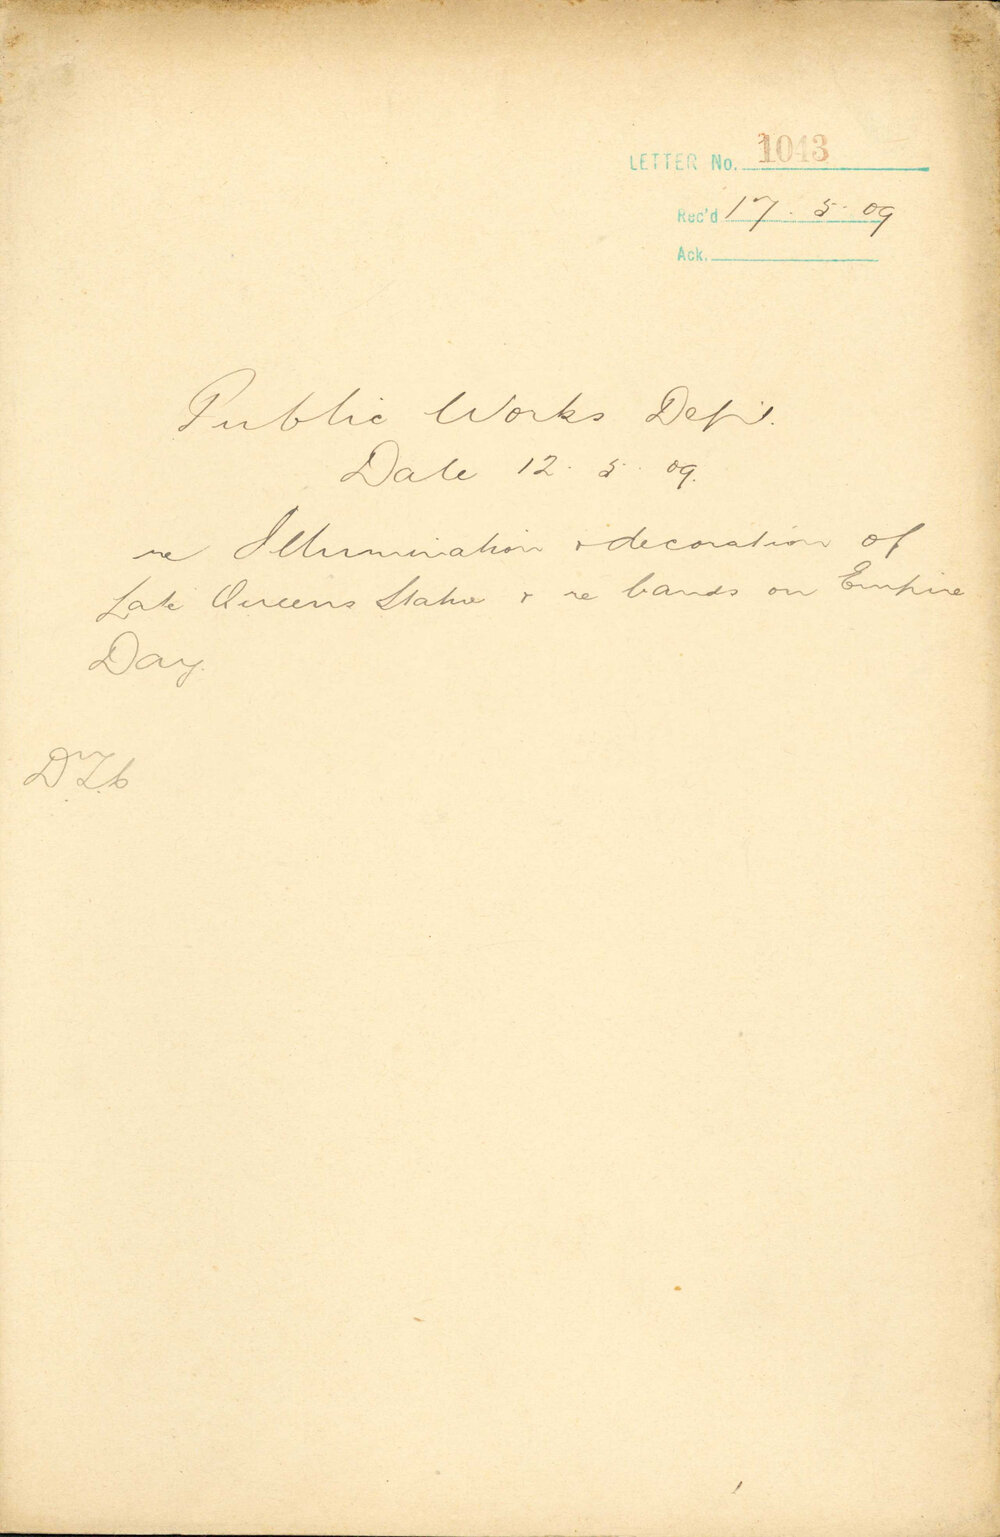 LETTER No. 1043
Rec'd 17.5.09
Ack.
Public Works Dept.
Date 12.5.09.
re Illumination & decoration of
Late Queens Statue & re bands on Empire
Day.